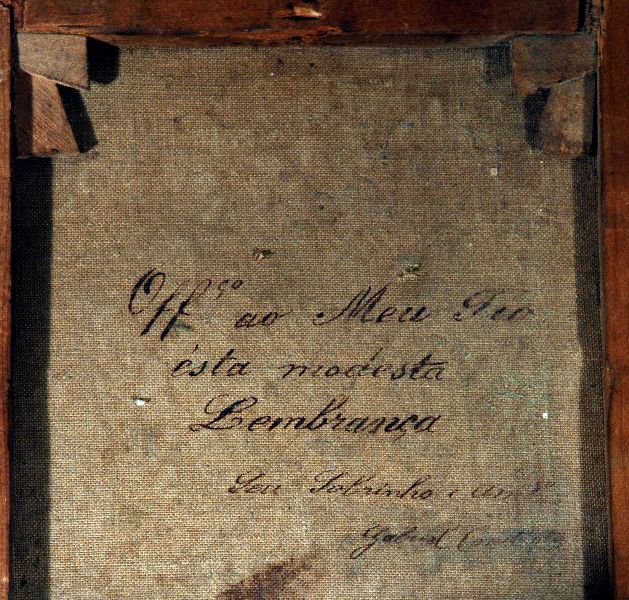 Offço ao Meu Tio
esta modesta
Lembrança
Seu Sobrinho e Amº
Gabriel